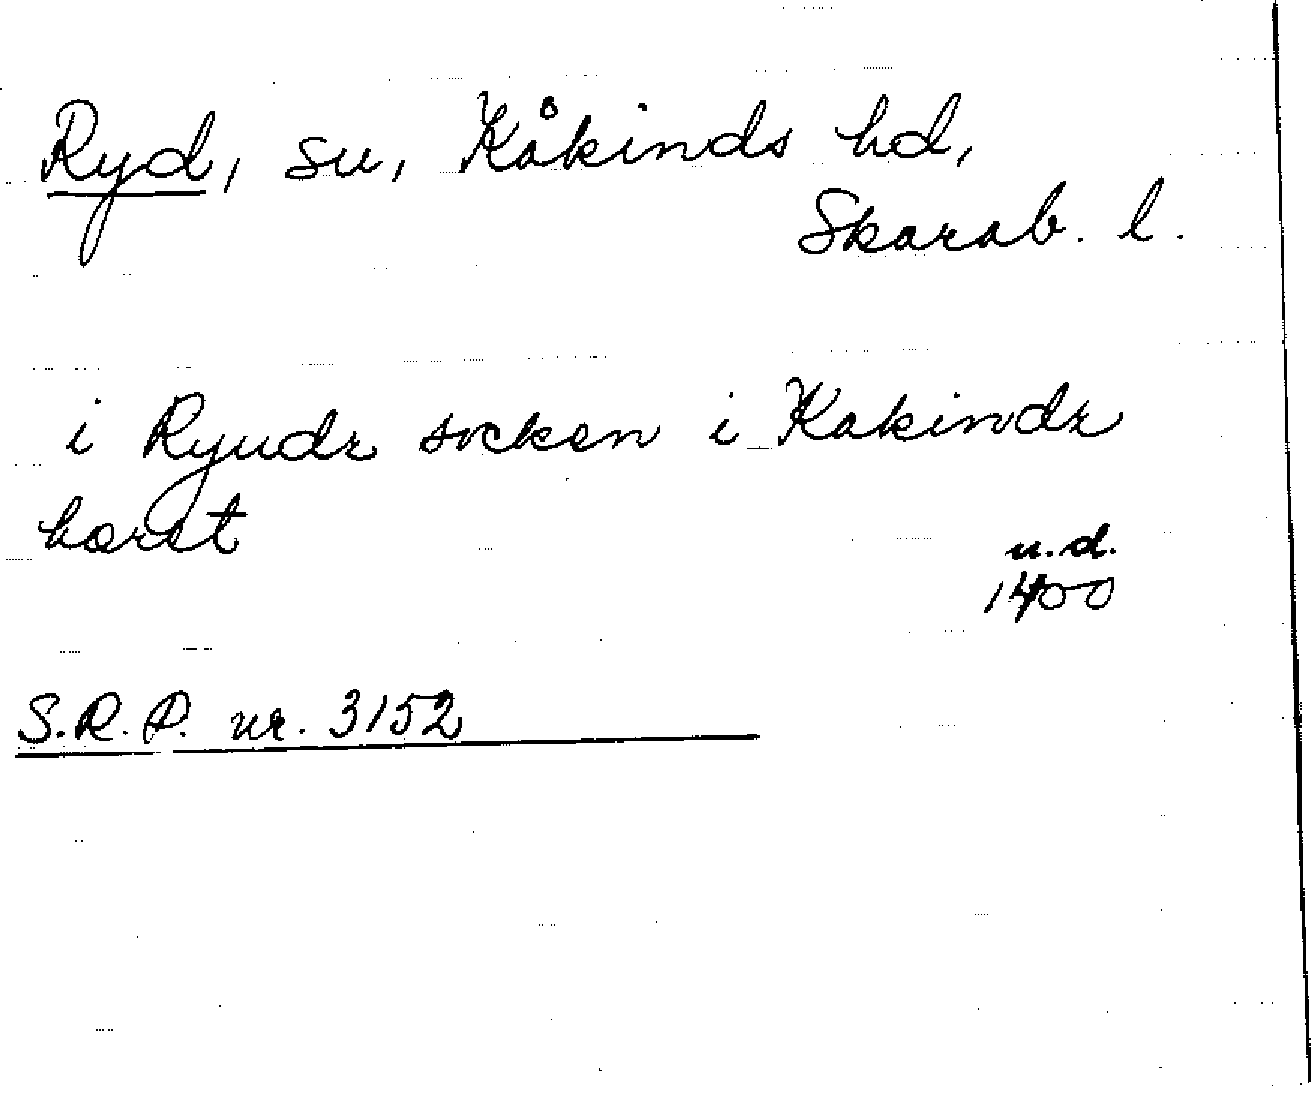 Ryd, sn, Kåkinds hd,
Skarab. l.
i Ryudz socken i Kakindz
hæræt
u.d.
1400
S.R.P. nr. 3152